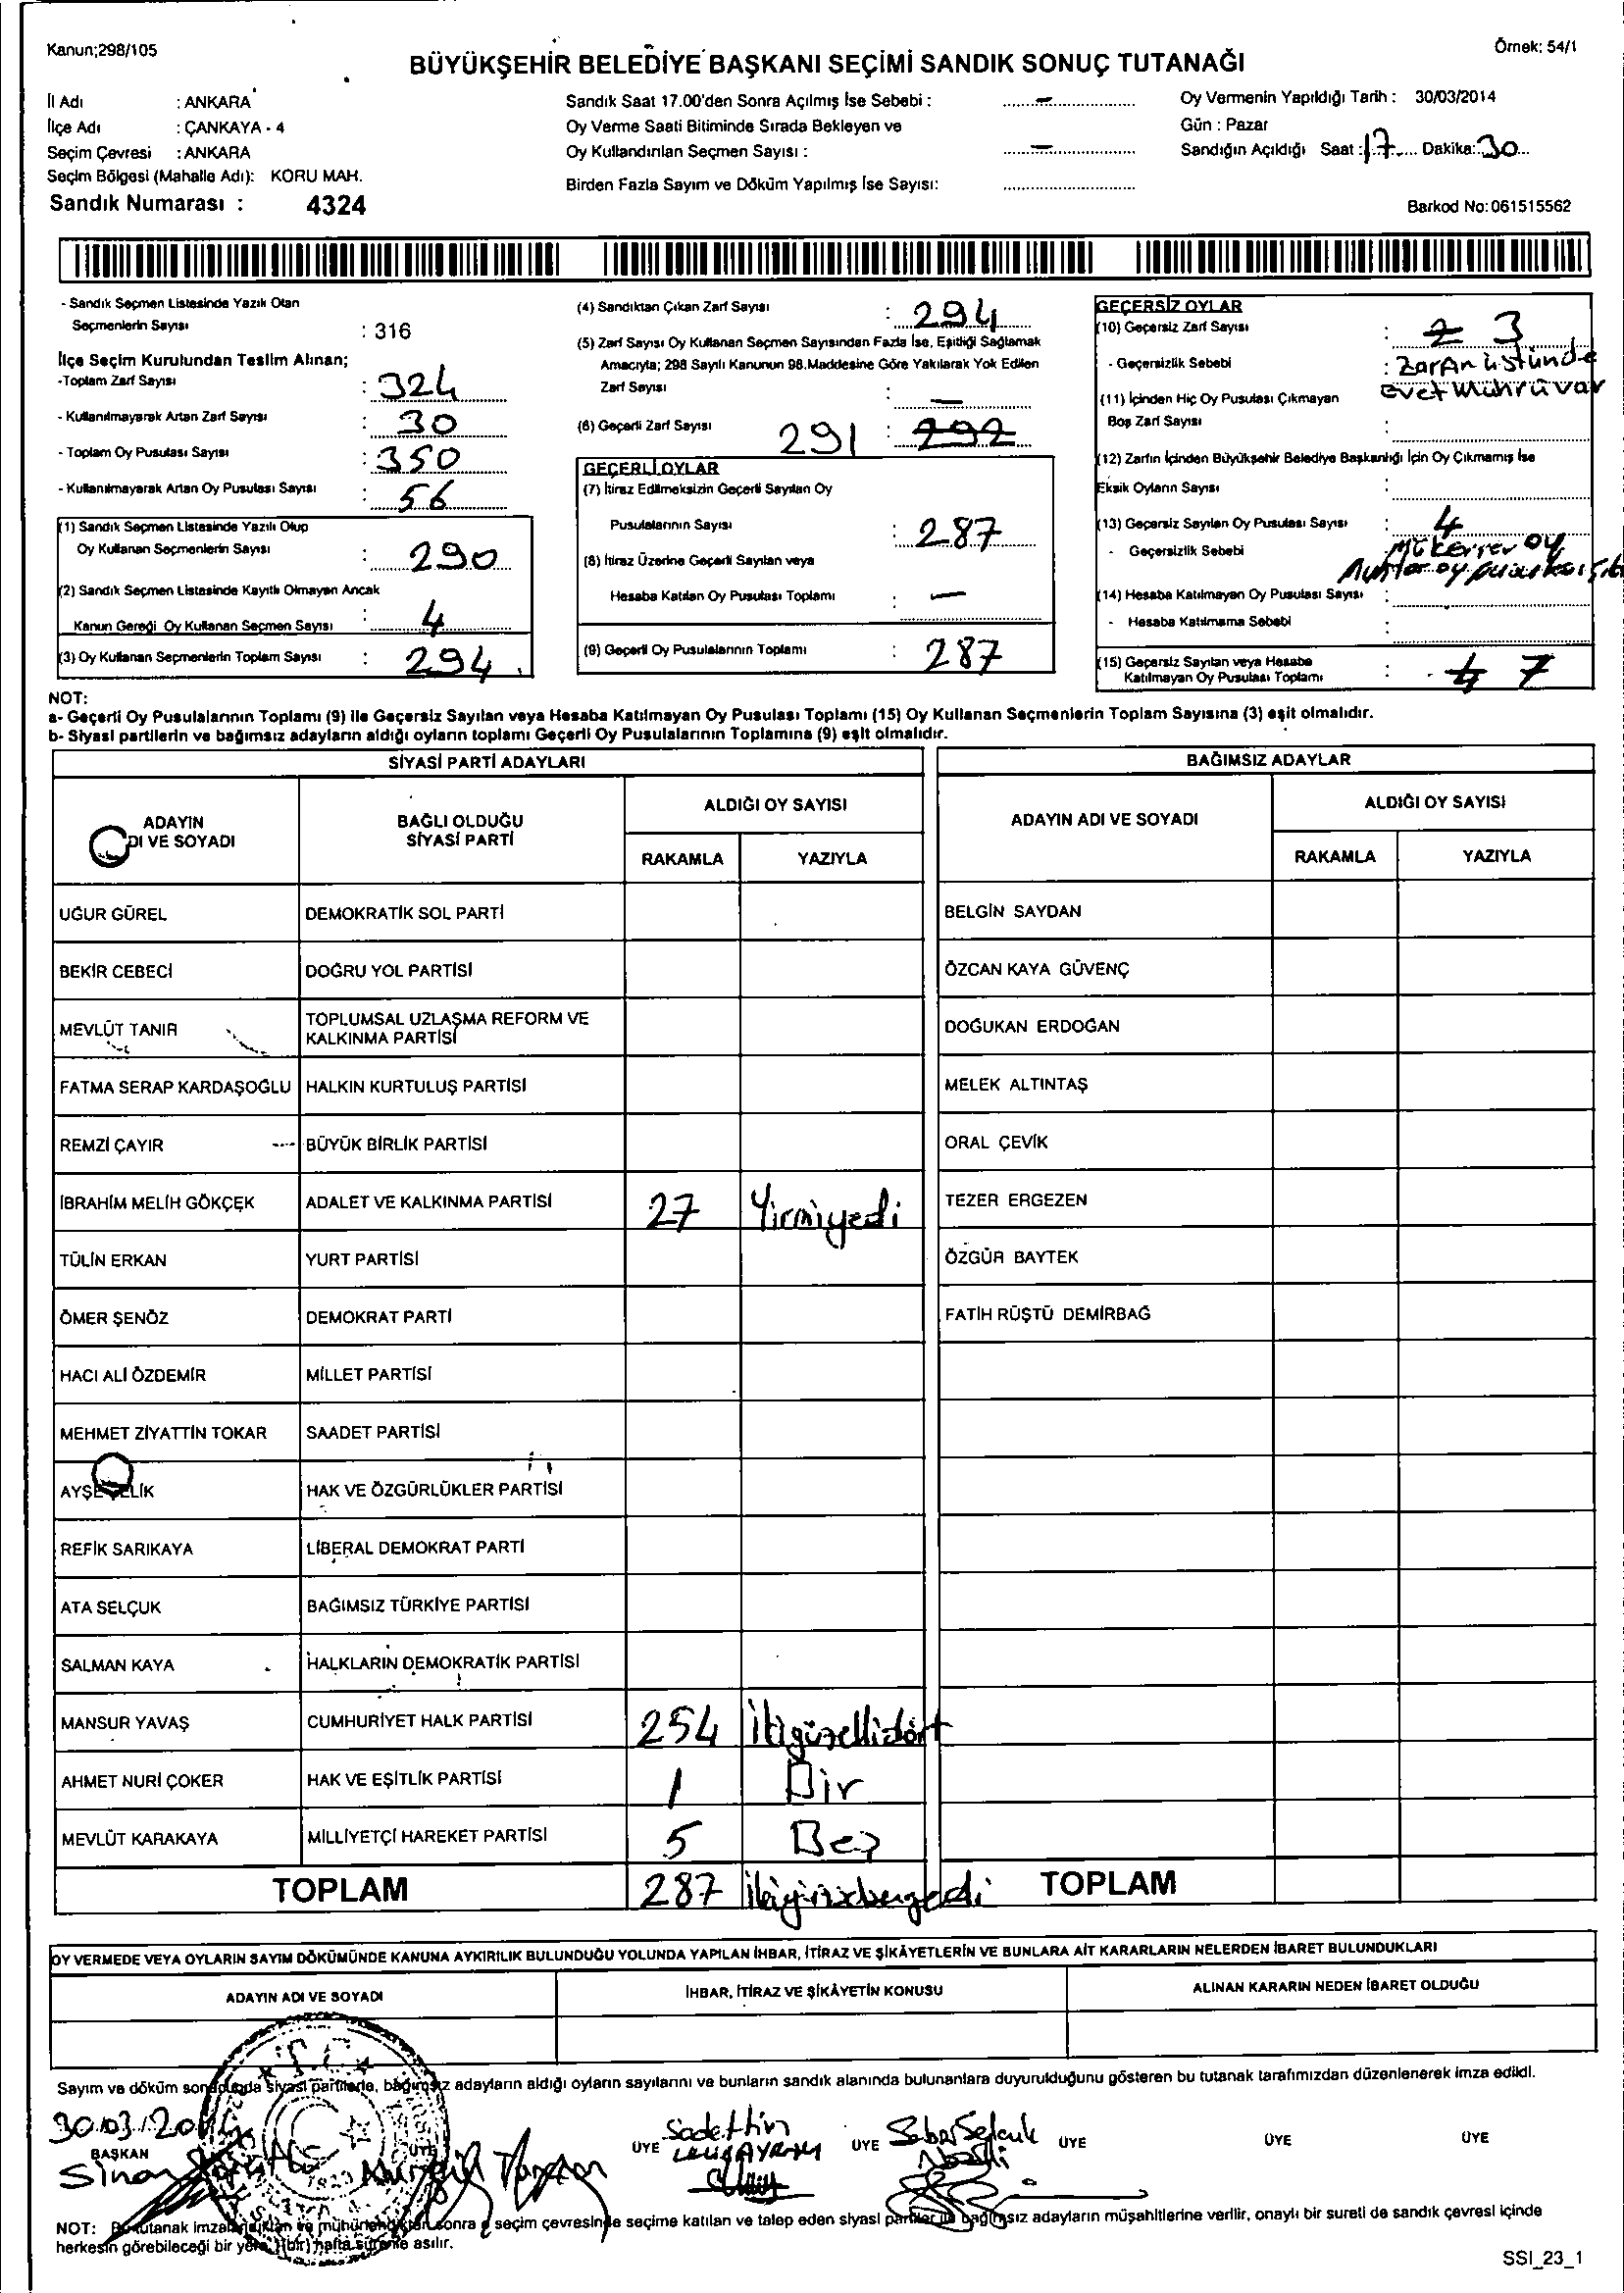 Kanun;298/105
Örnek: 54/1
BÜYÜKŞEHİR BELEDİYE BAŞKANI SEÇİMİ SANDIK SONUÇ TUTANAĞI
İl Adı : ANKARA
İlçe Adı : ÇANKAYA - 4
Seçim Çevresi : ANKARA
Seçim Bölgesi (Mahalle Adı): KORU MAH.
Sandık Numarası : 4324
Sandık Saat 17.00'den Sonra Açılmış İse Sebebi : –
Oy Verme Saati Bitiminde Sırada Bekleyen ve
Oy Kullandırılan Seçmen Sayısı : –
Birden Fazla Sayım ve Döküm Yapılmış İse Sayısı:
Oy Vermenin Yapıldığı Tarih : 30/03/2014
Gün : Pazar
Sandığın Açıldığı Saat : 17 Dakika: 30
Barkod No:061515562
- Sandık Seçmen Listesinde Yazılı Olan
Seçmenlerin Sayısı : 316
İlçe Seçim Kurulundan Teslim Alınan;
-Toplam Zarf Sayısı : 324
- Kullanılmayarak Artan Zarf Sayısı : 30
- Toplam Oy Pusulası Sayısı : 350
- Kullanılmayarak Artan Oy Pusulası Sayısı : 56
(1) Sandık Seçmen Listesinde Yazılı Olup
Oy Kullanan Seçmenlerin Sayısı : 290
(2) Sandık Seçmen Listesinde Kayıtlı Olmayan Ancak
Kanun Gereği Oy Kullanan Seçmen Sayısı : 4
(3) Oy Kullanan Seçmenlerin Toplam Sayısı : 294
(4) Sandıktan Çıkan Zarf Sayısı : 294
(5) Zarf Sayısı Oy Kullanan Seçmen Sayısından Fazla İse, Eşitliği Sağlamak
Amacıyla; 298 Sayılı Kanunun 98.Maddesine Göre Yakılarak Yok Edilen
Zarf Sayısı : –
(6) Geçerli Zarf Sayısı 291 : 292
GEÇERLİ OYLAR
(7) İtiraz Edilmeksizin Geçerli Sayılan Oy
Pusulalarının Sayısı : 287
(8) İtiraz Üzerine Geçerli Sayılan veya
Hesaba Katılan Oy Pusulası Toplamı : –
(9) Geçerli Oy Pusulalarının Toplamı : 287
GEÇERSİZ OYLAR
(10) Geçersiz Zarf Sayısı : 2 3
- Geçersizlik Sebebi : Zarfın üstünde
Evet Mührü var
(11) İçinden Hiç Oy Pusulası Çıkmayan
Boş Zarf Sayısı :
(12) Zarfın İçinden Büyükşehir Belediye Başkanlığı İçin Oy Çıkmamış İse
Eksik Oyların Sayısı :
(13) Geçersiz Sayılan Oy Pusulası Sayısı : 4
- Geçersizlik Sebebi Mükerrer oy
(14) Hesaba Katılmayan Oy Pusulası Sayısı :
- Hesaba Katılmama Sebebi :
(15) Geçersiz Sayılan veya Hesaba
Katılmayan Oy Pusulası Toplamı : 4 7
NOT:
a- Geçerli Oy Pusulalarının Toplamı (9) ile Geçersiz Sayılan veya Hesaba Katılmayan Oy Pusulası Toplamı (15) Oy Kullanan Seçmenlerin Toplam Sayısına (3) eşit olmalıdır.
b- Siyasi partilerin ve bağımsız adayların aldığı oyların toplamı Geçerli Oy Pusulalarının Toplamına (9) eşit olmalıdır.
SİYASİ PARTİ ADAYLARI
ADAYIN
DI VE SOYADI
BAĞLI OLDUĞU
SİYASİ PARTİ
ALDIĞI OY SAYISI
RAKAMLA YAZIYLA
UĞUR GÜREL DEMOKRATİK SOL PARTİ
BEKİR CEBECİ DOĞRU YOL PARTİSİ
MEVLÜT TANIR TOPLUMSAL UZLAŞMA REFORM VE
KALKINMA PARTİSİ
FATMA SERAP KARDAŞOĞLU HALKIN KURTULUŞ PARTİSİ
REMZİ ÇAYIR BÜYÜK BİRLİK PARTİSİ
İBRAHİM MELİH GÖKÇEK ADALET VE KALKINMA PARTİSİ 27 Yirmiyedi
TÜLİN ERKAN YURT PARTİSİ
ÖMER ŞENÖZ DEMOKRAT PARTİ
HACI ALİ ÖZDEMİR MİLLET PARTİSİ
MEHMET ZİYATTİN TOKAR SAADET PARTİSİ
AYŞE ÇELİK HAK VE ÖZGÜRLÜKLER PARTİSİ
REFİK SARIKAYA LİBERAL DEMOKRAT PARTİ
ATA SELÇUK BAĞIMSIZ TÜRKİYE PARTİSİ
SALMAN KAYA HALKLARIN DEMOKRATİK PARTİSİ
MANSUR YAVAŞ CUMHURİYET HALK PARTİSİ 254 İkiyüzellidört
AHMET NURİ ÇOKER HAK VE EŞİTLİK PARTİSİ 1 Bir
MEVLÜT KARAKAYA MİLLİYETÇİ HAREKET PARTİSİ 5 Beş
TOPLAM 287
BAĞIMSIZ ADAYLAR
ADAYIN ADI VE SOYADI
ALDIĞI OY SAYISI
RAKAMLA YAZIYLA
BELGİN SAYDAN
ÖZCAN KAYA GÜVENÇ
DOĞUKAN ERDOĞAN
MELEK ALTINTAŞ
ORAL ÇEVİK
TEZER ERGEZEN
ÖZGÜR BAYTEK
FATİH RÜŞTÜ DEMİRBAĞ
TOPLAM
OY VERMEDE VEYA OYLARIN SAYIM DÖKÜMÜNDE KANUNA AYKIRILIK BULUNDUĞU YOLUNDA YAPILAN İHBAR, İTİRAZ VE ŞİKÂYETLERİN VE BUNLARA AİT KARARLARIN NELERDEN İBARET BULUNDUKLARI
ADAYIN ADI VE SOYADI İHBAR, İTİRAZ VE ŞİKÂYETİN KONUSU ALINAN KARARIN NEDEN İBARET OLDUĞU
Sayım ve döküm sonucunda siyasi partilerle, bağımsız adayların aldığı oyların sayılarını ve bunların sandık alanında bulunanlara duyurulduğunu gösteren bu tutanak tarafımızdan düzenlenerek imza edildi.
30.03.2014
BAŞKAN ÜYE ÜYE ÜYE ÜYE ÜYE ÜYE
Sinan
Sadettin
NOT: Bu tutanak imzalandıktan ve mühürlendikten sonra seçim çevresinde seçime katılan ve talep eden siyasi partiler ile bağımsız adayların müşahitlerine verilir, onaylı bir sureti de sandık çevresi içinde
herkesin görebileceği bir yere, 1(bir) hafta süreyle asılır.
SSI_23_1